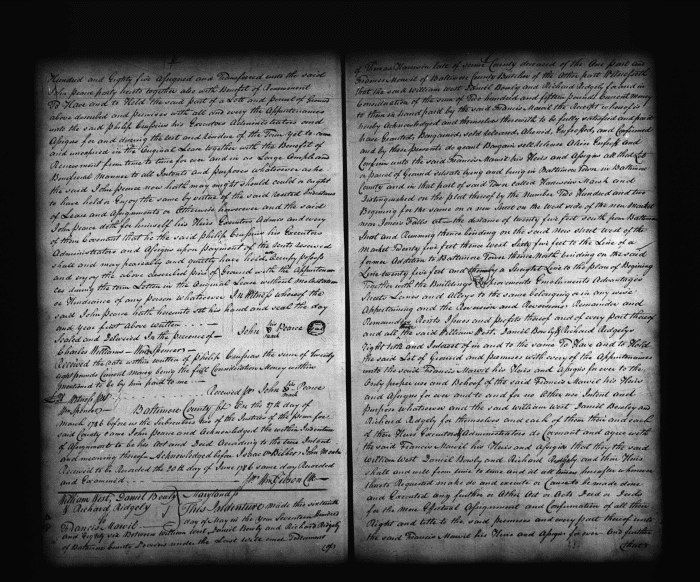 Hundred and Eighty five Assigned and Transferred unto the said
John Pearce party hereto together also with Benefit of Renewment
To Have and to Hold the said part of a Lott and parcel of Ground
above demised and premises with all and every the Appurtenances
unto the said Philip his Executors Administrators and
Assigns for and during the rest and residue of the Term yet to come
and unexpired in the Original Lease together with the Benefit of
Renewment from time to time for ever and in as Large Ample and
Beneficial Manner to all Intents and purposes whatsoever as he
the said John Pearce now hath may might should could or ought
to have hold or Enjoy the same by virtue of the said recited Indenture
of Lease and Assignments or Otherwise however and the said
John Pearce doth for himself his Heirs Executors Admrs and every
of them Covenant that he the said Philip his Executors
Administrators and Assigns upon payment of the rents reserved
shall and may peaceably and quietly have hold Occupy possess
and enjoy the above described piece of Ground with the Appurtenan
ces during the term Letten in the Original Lease without Molestation
or Hindrance of any person whatsoever In Witness whereof the
said John Pearce hath hereunto set his hand and seal the day
and year first above written
Sealed and Delivered In the Presence of John his mark Pearce
Charles Williams Wm Spencer
Received the date within written of Philip the sum of twenty
eight pounds Current Money being the full Consideration Money within
mentioned to be by him paid to me
Witness Received pr John his mark Pearce
Wm Spencer Baltimore County sct On the 27th day of
March 1786 before us the Subscribers two of the Justices of the peace for
said County came John Pearce and Acknowledged the within Indenture
of Assignment to be his Act and Deed According to the true Intent
and meaning thereof Acknowledged before
Received to be Recorded the 20th day of June 1786 same day Recorded
and Examined pr Wm Gibson Clk
William West, Daniel Bowly Maryland ss
& Richard Ridgely This Indenture made this sixteenth
To day of May in the Year Seventeen Hundred
Francis Mawil
and Eighty six Between William West Daniel Bowly and Richard Ridgely
of Baltimore County Devisees under the Last Will and Testament
(of)
of Thomas Harrison late of same County deceased of the One part and
Francis Mawil of Baltimore County Butcher of the Other part Witnesseth
that the said William West Daniel Bowly and Richard Ridgely for and in
Consideration of the sum of Two hundred and fifteen pounds Current Money
to them in hand paid by the said Francis Mawil the receipt whereof is
hereby Acknowledged and themselves therewith to be fully satisfied and paid
have Granted, Bargained, sold released, Aliened, Enfeoffed, and Confirmed
and by these presents do grant Bargain sell release Alien Enfeoff and
Confirm unto the said Francis Mawil his Heirs and Assigns all that Lot
or parcel of Ground situate lying and being in Baltimore Town in Baltimore
County and in that part of said Town called Harrisons Marsh and
distinguished on the plat thereof by the Number Two Hundred and two
Begining for the same on a new street on the West side of the new Market
near Jones's Falls at the distance of twenty five feet south from Baltimore
Street and Running thence binding on the said New street West of the
Market Twenty five feet thence West Sixty five feet to the Line of a
former Addition to Baltimore Town thence North binding on the said
Line twenty five feet and thence by a straight Line to the place of Begining
Together with the Buildings Improvements Emoluments Advantages
Streets Lanes and Alleys to the same belonging or in any wise
Appertaining and the Reversion and Reversions Remainder and
Remainders Rents Issues and profits thereof and of every part thereof
and all the said William West, Daniel Bowly & Richard Ridgely's
right title and Interest of in and to the same To Have and to Hold
the said Lot of Ground and premises with every of the Appurtenances
unto the said Francis Mawil his Heirs and Assigns for ever to the
Only proper use and Behoof of the said Francis Mawil his Heirs
and Assigns for ever and to and for no Other use Intent and
Purpose whatsoever and the said William West Daniel Bowley and
Richard Ridgely for themselves and each of them their and each
of their Heirs Executors & Administrators do Covenant and agree with
the said Francis Mawil his Heirs and Assigns that they the said
William West Daniel Bowly and Richard Ridgely and their Heirs
shall and will from time to time and at all times hereafter whenever
thereto Requested make do and execute or Cause to be made done
and Executed any further or Other Act or Acts Deed or Deeds
for the more Effectual Assignment and Confirmation of all their
Right and title to the said premises and every part thereof unto
the said Francis Mawil his Heirs and Assigns for ever and further